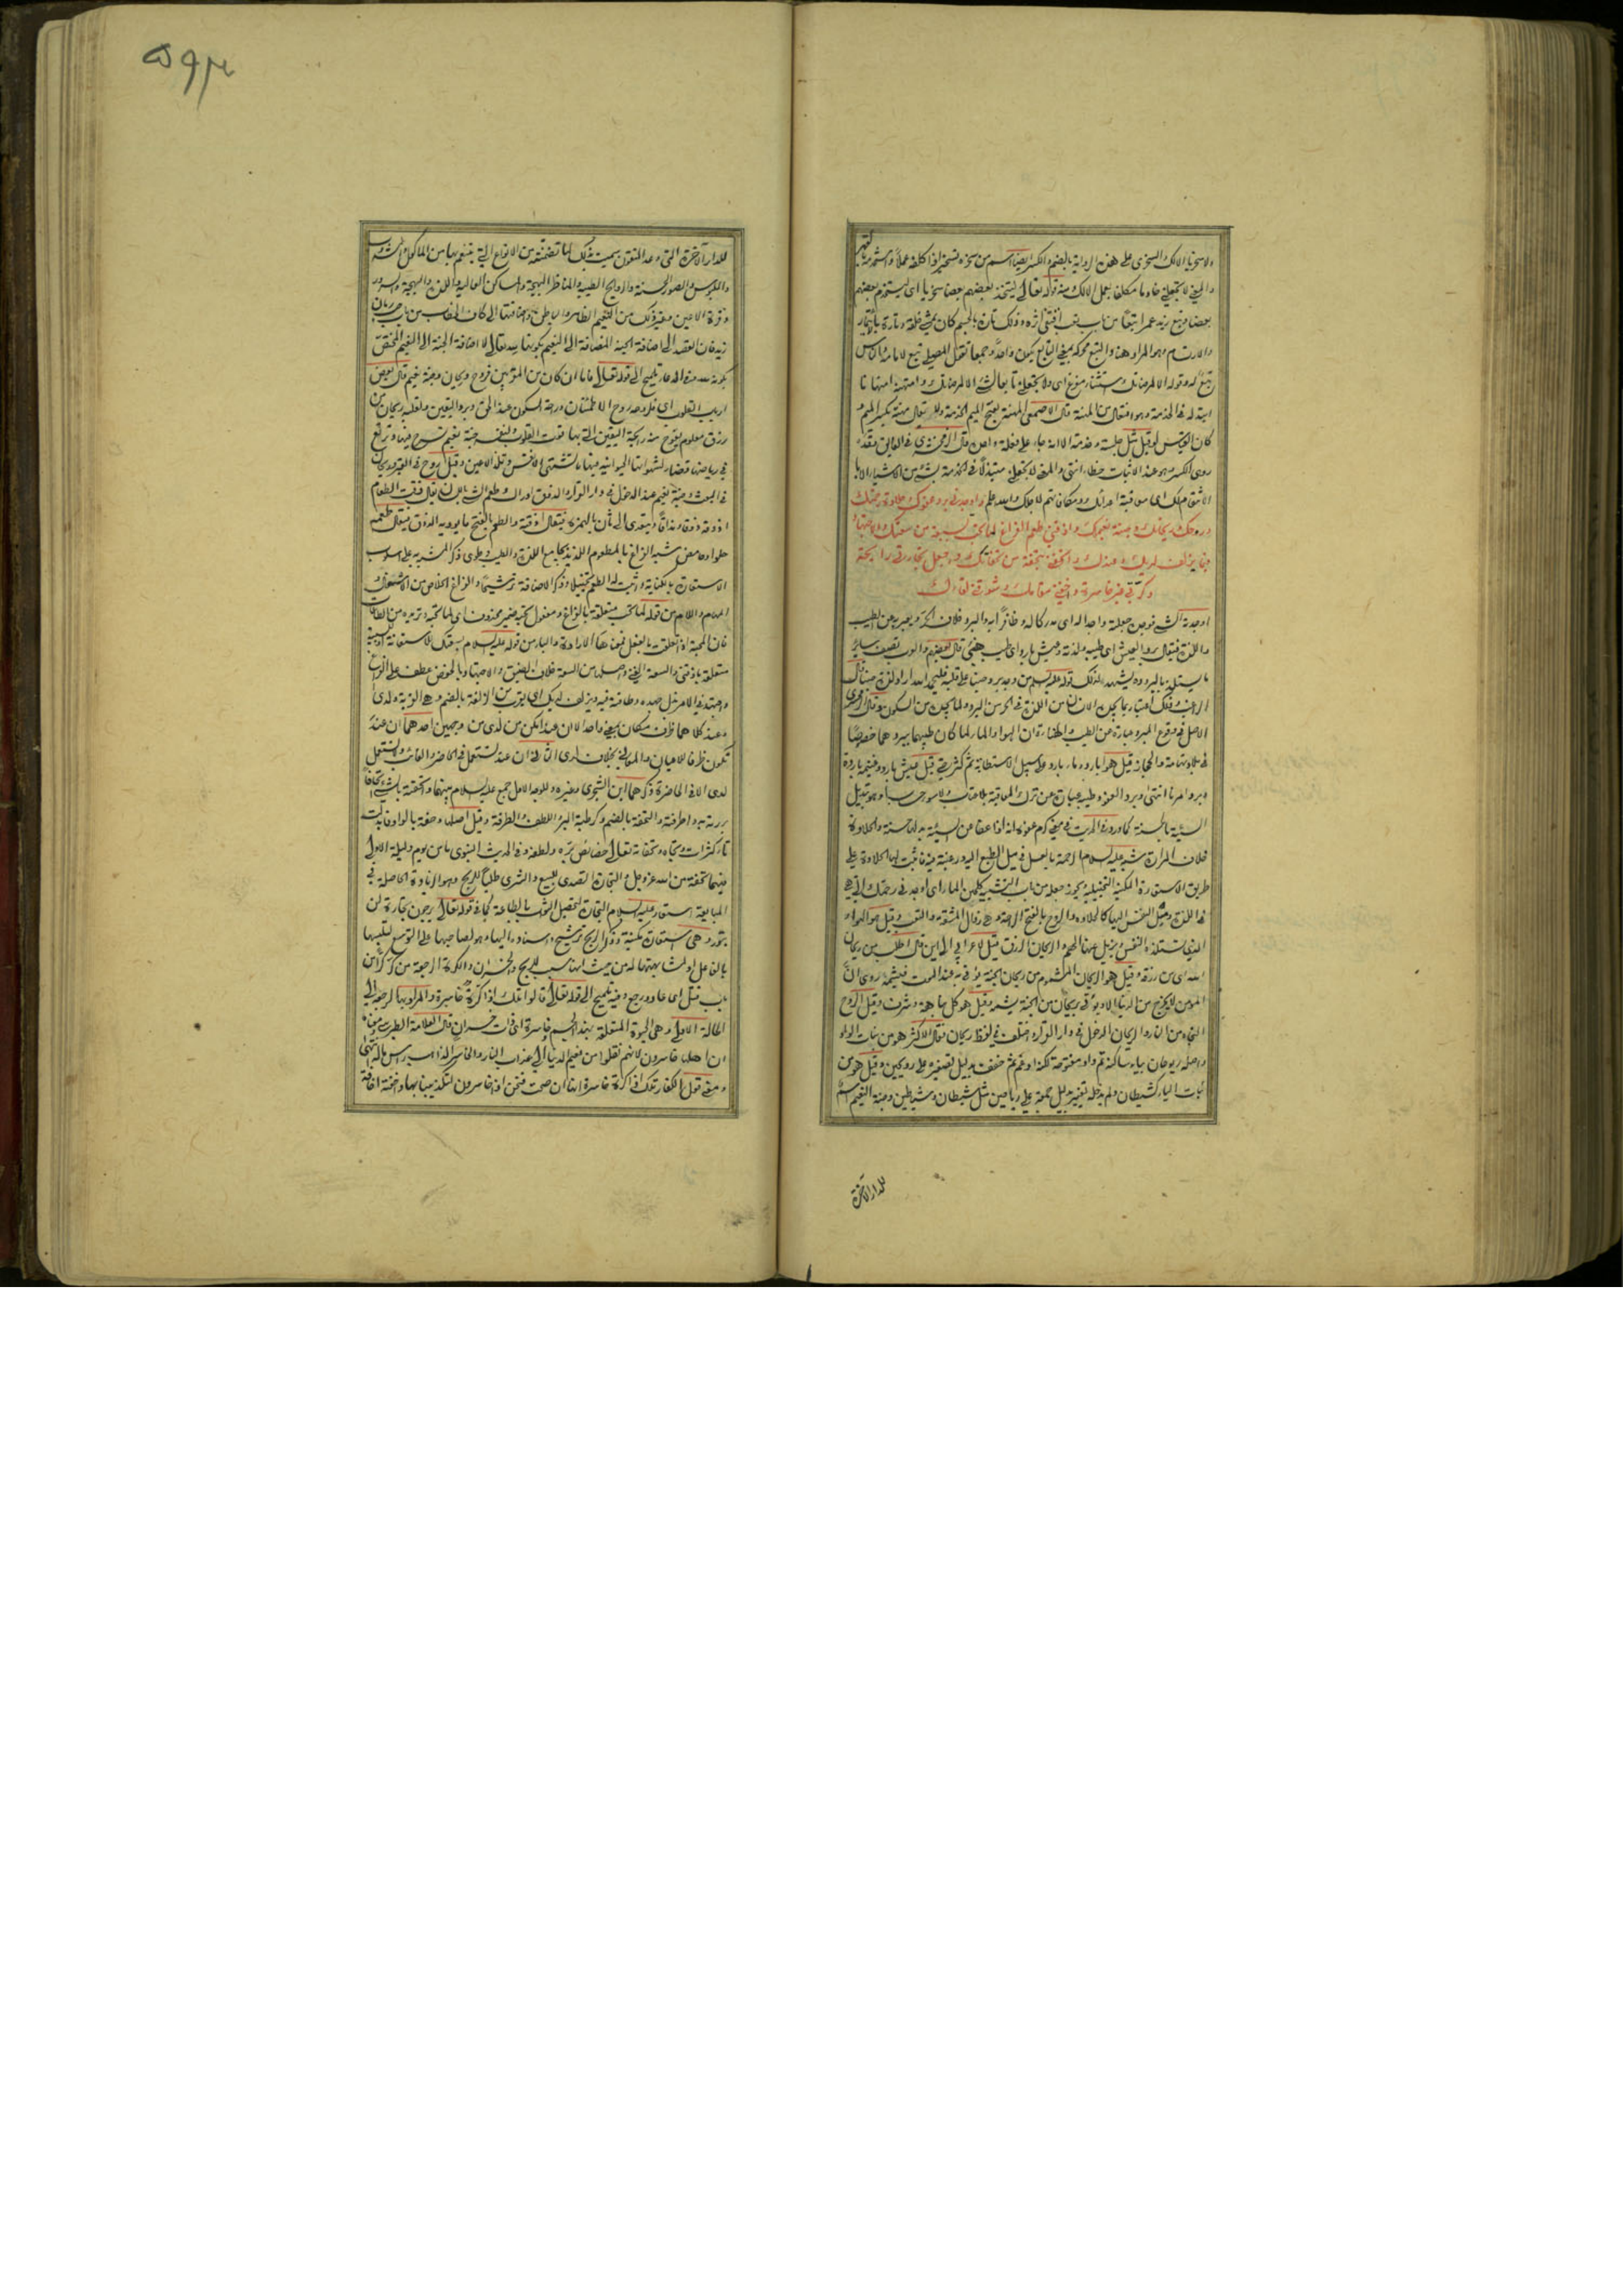 ولا سخريا الا لك والسخرى على هذه الرواية بالضم والكسر ايضا اسم من سخره تسخيرا اذا كلفه عملا
والمعنى لا تجعلني خادما مكلفا بعمل الا لك ومنه قوله تعالى ليتخذ بعضهم بعضا سخريا اى ليستخدم بعضهم
بعضا وتبع زيد عمرا تبعا من باب تعب اقتفى اثره وذلك تارة بالجسم كان يمشى خلفه وتارة
والارتسام وهو المراد هنا والتبع محركة بمعنى التابع يكون واحدا وجمعا تقول المصلى تبع لامامه والناس
تبع له وقوله الا لمرضاتك استثناء مفرغ اى ولا تجعلنى تابعا لشئ الا لمرضاتك وامتهنه امتهانا
ابتذله فى الخدمة وهو افتعال من المهنة قال الاصمعى المهنة بفتح الميم الخدمة ولا يقال مهنة بكسر الميم و
كان القياس لو قيل مثل جلسة وخدمة الا انه جاء على فعلة واحدة قال الزمخشرى فى الفائق وقد
روى الكسر وهو عند الاثبات خطاء انتهى والمعنى لا تجعلنى مبتذلا فى الخدمة بشئ من الاشياء الا
لانتقام لك اى معاقبة اعدائك ومكافاتهم لاجلك والله اعلم واوجدنى برد عفوك وحلاوة رحمتك
وروحك وريحانك وجنة نعيمك واذقنى طعم الفراغ لما تحب بسعة من سعتك والاجتهاد
فيما يزلف لديك وعندك واتحفنى بتحفة من تحفاتك واجعل تجارتى رابحة
وكرتى غير خاسرة واخفنى مقامك وشوقنى لقاءك
اوجدته الشئ فوجده جعلته واجدا له اى مدركا له وظافرا به والبرد خلاف الحر ويعبر به عن الطيب
واللذة فيقال برد العيش اى طيبه ولذته وعيش بارد اى طيب هنئ قال بعضهم والعرب تصف ساير
ما يستلذ بالبرودة ويشهد لذلك قوله عليه السلام من وجد برد حبنا على قلبه فليحمد الله اراد لذة حبنا قال
الراغب وذلك اعتبارا بما يجد الانسان من اللذة فى الحر من البرد ولما يجد من السكون وقال الزمخشرى
الاصل فى وقوع البرد عبارة عن الطيب والهناءة ان الهواء والماء لما كان طيبهما ببردهما خصوصا
فى بلاد تهامة والحجاز قيل هواء بارد وماء بارد على سبيل الاستطابة ثم كثر حتى قيل عيش بارد وغنيمة باردة
وبرد امرنا انتهى وبرد العفو وطيبه عبارة عن ترك المعاقبة
السيئة بالحسنة كما ورد فى الحديث
خلاف المرارة شبه عليه السلام الرحمة بالعسل فى ميل الطبع اليه ورغبته فيه فاثبت لها الحلاوة على
طريق الاستعارة المكنية التخييلية ويجوز جعله من باب التشبيه كلجين الماء اى اوجدنى رحمتك التى هى
فى اللذة وميل النفس اليها كالحلاوة والروح بالفتح الراحة وهى زوال المشقة والتعب وقيل هو الهواء
الذى تستلذه النفس ويزيل عنها الهم والريحان الرزق قيل لاعرابى الى اين قال اطلب من ريحان
الله اى من رزقه وقيل هو الريحان المشموم من ريحان الجنة يؤتى به عند الموت فيشمه روى ان
المؤمن لا يخرج من الدنيا الا ويؤتى بريحان من الجنة يشمه وقيل هو كل نباهة وشرف وقيل الروح
النجاة من النار والريحان الدخول فى دار القرار واختلف فى لفظ ريحان فقال الاكثر هو من بنات الواو
واصله ريوحان بياء ساكنة ثم واو مفتوحة لكنه ادغم ثم خفف بدليل تصغيره على رويحين وقيل هو من
بنات الياء كشيطان ولم يدخله تغيير بدليل جمعه على رياحين مثل شيطان وشياطين وجنة النعيم اسم
للدار الآخرة
۵۹۳
للدار الآخرة التى وعد المتقون سميت بذلك لما تضمنته من الانواع التى يتنعم بها من الماكول والمشروب
والملبوس والصور الحسنة والروايح الطيبة والمناظر البهيجة والمساكن العالية واللذة والبهجة والسرور
وقرة الاعين وغير ذلك من النعيم الظاهر والباطن واضافتها الى كاف الخطاب من باب حب رمان
زيد فان القصد الى اضافة الجنة المضافة الى النعيم بكونها لله تعالى لا اضافة الجنة الى النعيم المختص
بكونه لله وفى الدعاء تلميح الى قوله تعالى فاما ان كان من المقربين فروح وريحان وجنة نعيم قال بعض
ارباب القلوب اى فله وجدان روح الاطمئنان ودرجة السكون عند الحق وبرد اليقين ولقلبه ريحان من
رزق معلوم يفوح منه رايحة اليقين التى بها قوت القلوب ولنفسه جنة نعيم تسرح فيها وترتع
فى رياضها قضاء لشهواتها الحيوانية فيها ما تشتهى الانفس وتلذ الاعين وقيل روح فى القبر وريحان
فى البعث وجنة نعيم عند الدخول فى دار القرار والذوق ادراك طعم الشئ باللسان يقال ذقت الطعام
اذوقه ذوقا ومذاقا ويتعدى الى ثان بالهمزة فيقال اذقته والطعم بالفتح ما يؤديه الذوق فيقال طعمه
حلو او حامض شبه الفراغ بالمطعوم اللذيذ بجامع اللذة والطيب وطوى ذكر المشبه به على اسلوب
الاستعارة بالكناية واثبت له الطعم تخييلا وذكر الاضافة ترشيحا والفراغ الخلاص من الاشغال و
المهام واللام من قوله لما تحب متعلقة بالفراغ ومفعول تحب ضمير محذوف اى لما تحبه وتريده من الطاعات
فان المحبة اذا تعلقت بالفعل فمعناها الارادة والباء من قوله عليه السلام بسعتك للاستعانة او السببية
متعلقة باذقنى والسعة الغنى واصلها من السعة خلاف الضيق والاجتهاد بالخفض عطف على الفراغ
واجتهد فى الامر بذل جهده وطاقته فيه ويزلف لديك اى يقرب من الزلفة بالضم وهى القربة ولدى
وعند كلاهما ظرف مكان بمعنى واحد الا ان عند امكن من لدى من وجهين احدهما ان عند
تكون ظرفا للاعيان والمعانى بخلاف لدى الثانى ان عند تستعمل فى الحاضر والغائب ولا تستعمل
لدى الا فى الحاضر ذكرهما ابن الشجرى وغيره وللوجه الاول جمع عليه السلام بينهما واتحفته بالشئ اتحافا
بررته به واطرفته والتحفة بالضم وكرطبة البر واللطف والطرفة وقيل اصلها وحفة بالواو فابدلت
تاء كتراث وتجاه وتحفاته تعالى خصائص بره ولطفه وفى الحديث النبوى ما من يوم وليلة الا ولى
فيهما تحفة من الله عز وجل والتجارة التصدى للبيع والشرى طلبا للربح وهو الزيادة الحاصلة فى
المبايعة استعار عليه السلام التجارة لتحصيل الثواب بالطاعة كما فى قوله تعالى يرجون تجارة لن
تبور وهى استعارة مكنية وذكر الربح ترشيح واسناده اليها وهو لصاحبها على التوسع لتلبسها
بالفاعل او لمشابهتها له من حيث انها سبب للربح والخسران والكرة الرجعة من كر كرا من
باب قتل اى عاد ورجع وفيه تلميح الى قوله تعالى قالوا تلك اذا كرة خاسرة والمراد بها الرجعة الى
الحالة الاولى وهى الحيوة المتعلقة بهذا الجسم خاسرة اى ذات خسران قال العلامة الطبرسى معناه
ان اهلها خاسرون لانهم نقلوا من نعيم الدنيا الى عذاب النار والخاسر الذاهب راس ماله انتهى
ومعنى قول الكفار تلك اذا كرة خاسرة انها ان صحت فنحن اذا خاسرون لتكذيبنا بها واخفته اخافة